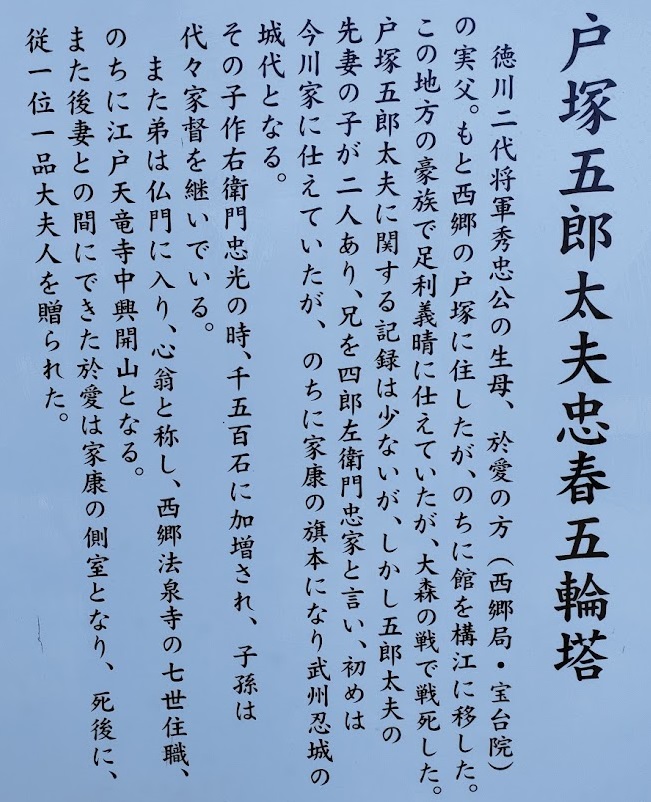 戸塚五郎太夫忠春五輪塔
徳川二代将軍秀忠公の生母、於愛の方（西郷局・宝台院）
の実父。もと西郷の戸塚に住したが、のちに館を構江に移した。
この地方の豪族で足利義晴に仕えていたが、大森の戦で戦死した。
戸塚五郎太夫に関する記録は少ないが、しかし五郎太夫の
先妻の子が二人あり、兄を四郎左衛門忠家と言い、初めは
今川家に仕えていたが、のちに家康の旗本になり武州忍城の
城代となる。
その子作右衛門忠光の時、千五百石に加増され、子孫は
代々家督を継いでいる。
また弟は仏門に入り、心翁と称し、西郷法泉寺の七世住職、
のちに江戸天竜寺中興開山となる。
また後妻との間にできた於愛は家康の側室となり、死後に、
従一位一品大夫人を贈られた。